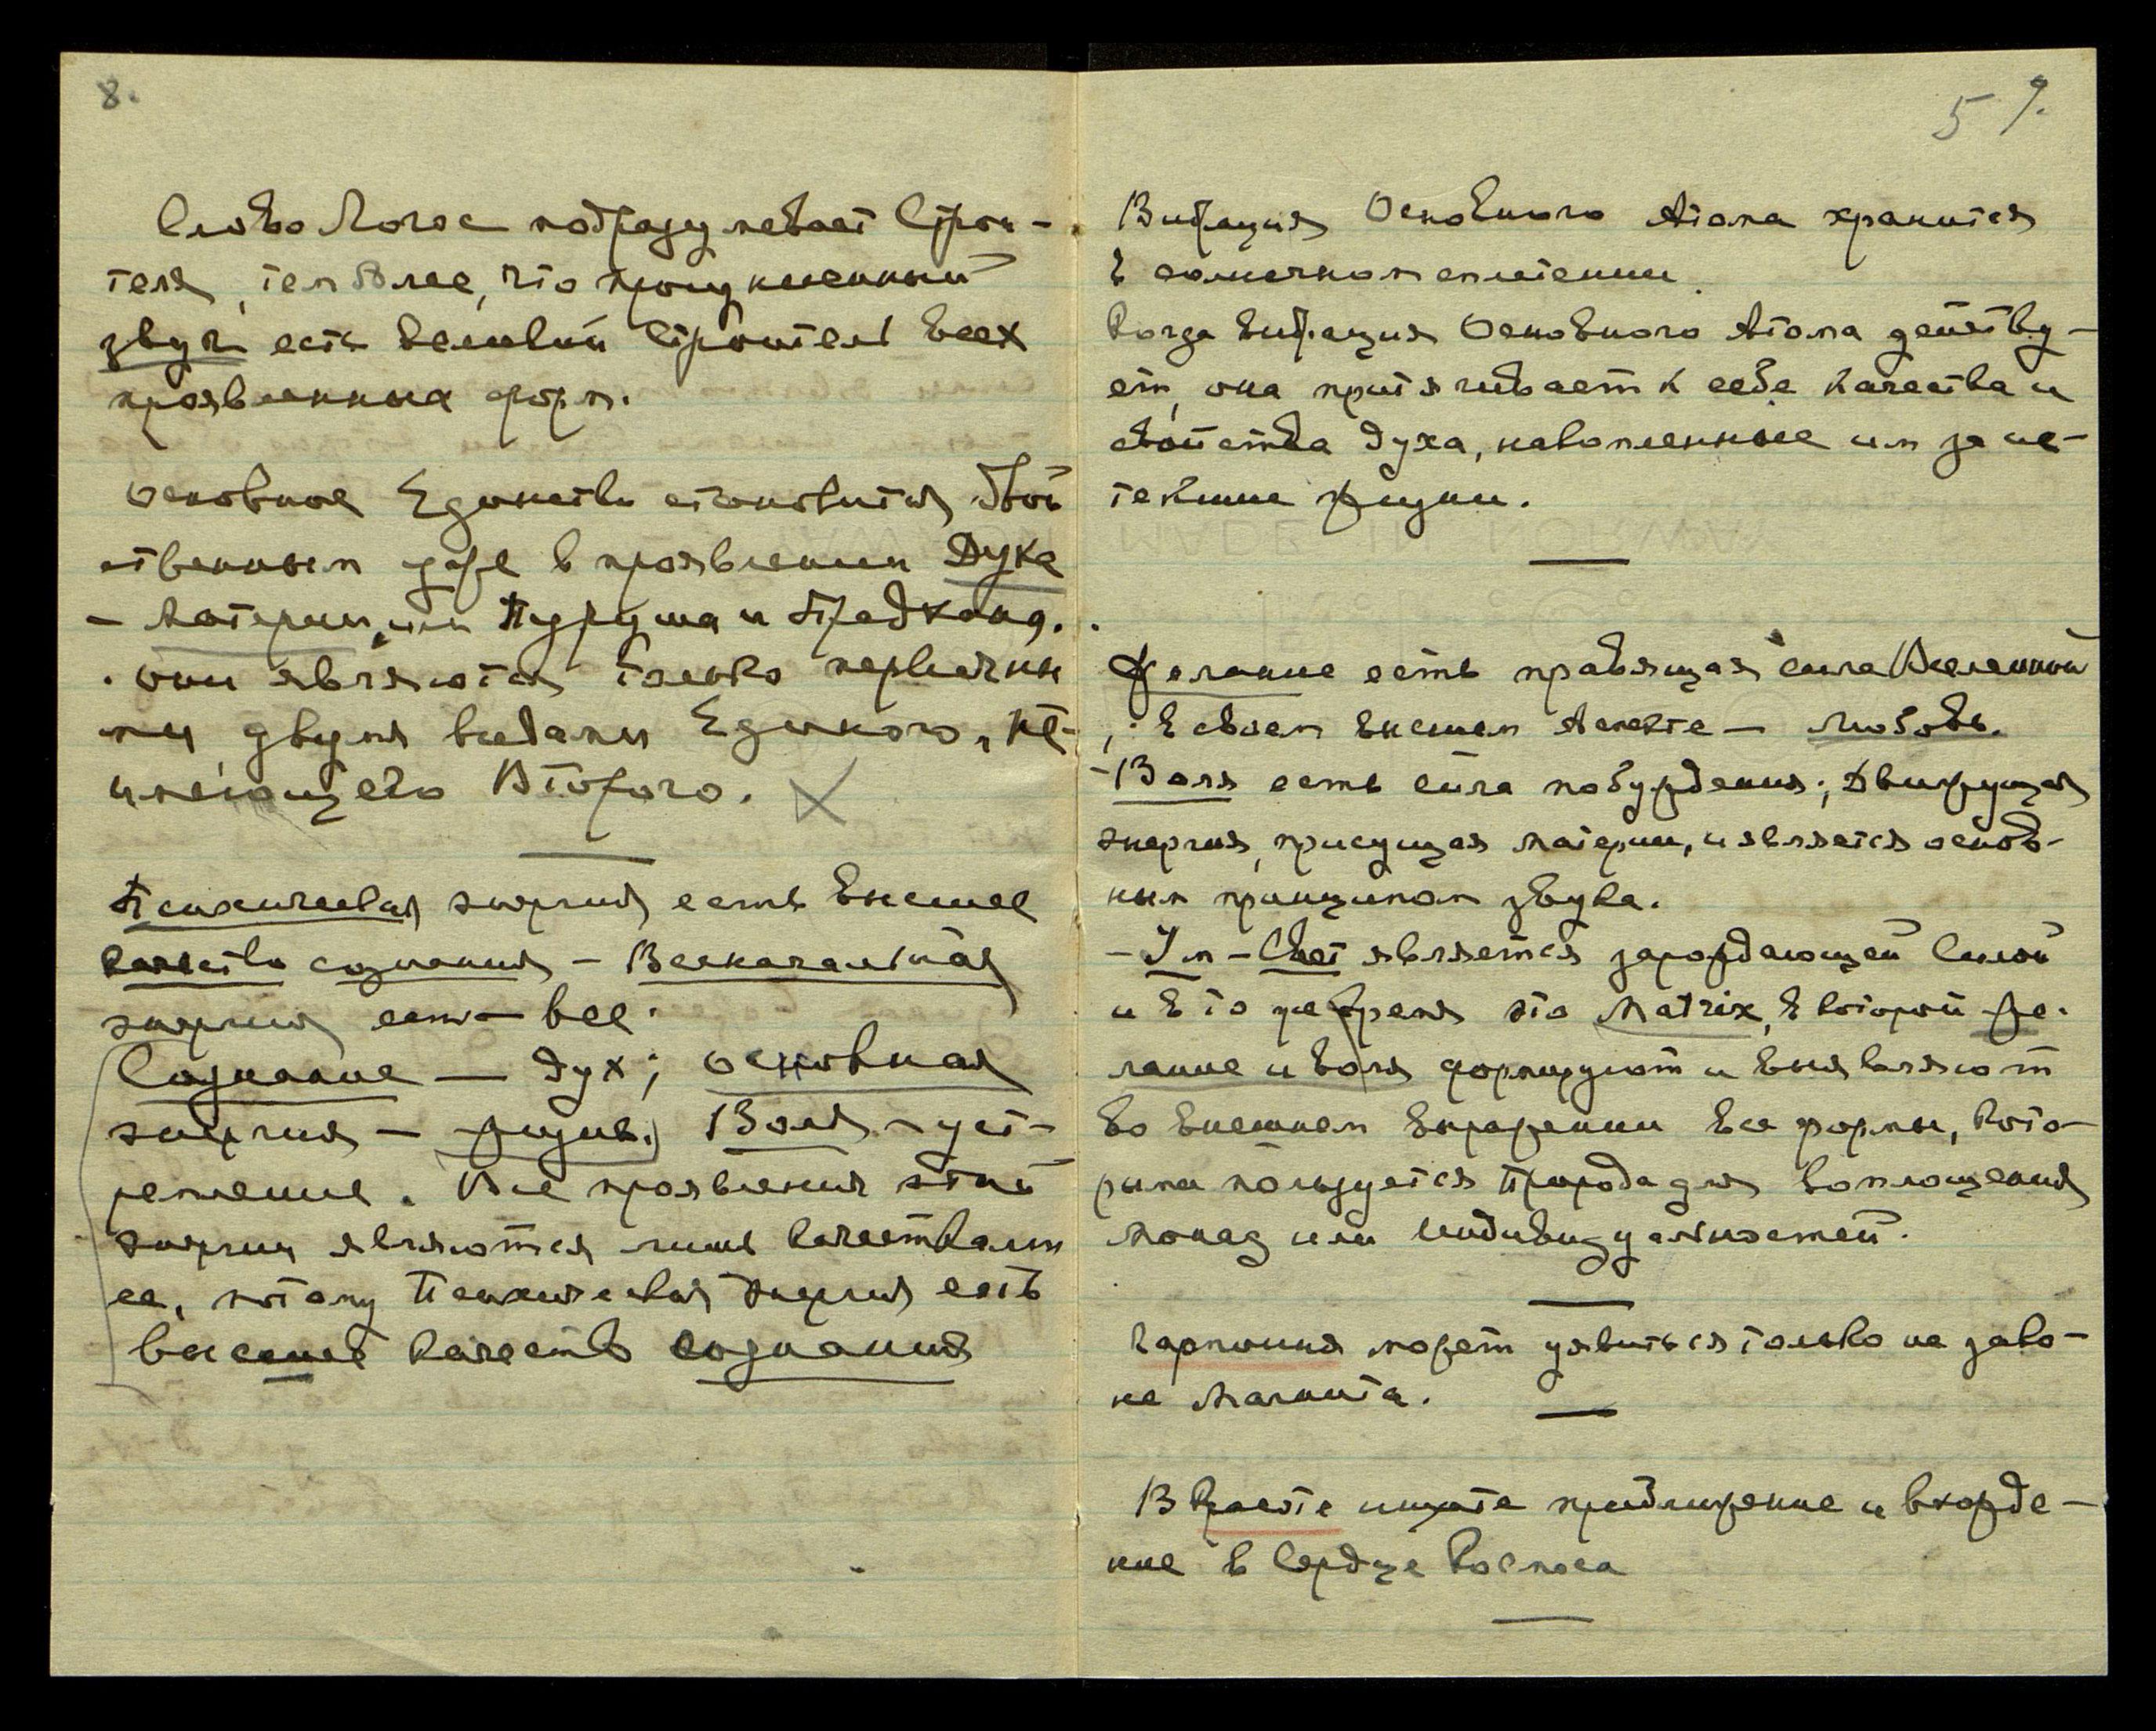 8.
Слово Логос подразумевает Строи-
теля, тем более, что произнесенный
звук есть великий строитель всех
проявленных форм.
Основное Единство становится двой
ственным даже в проявлении Духа
- Материи, или Пуруша и
. они являются только первичны
ми двумя видами Единого, не-
имеющего Второго. X
Психическая энергия есть высшее
качество сознания - Всеначальная
энергия есть - все.
Сознание — Дух; основная
энергия - жизнь. Воля - уст-
ремление. Все проявления этой
энергии являются лишь качествами
ее, потому Психическая Энергия есть
высшее качество сознания
5 9.
Вибрация Основного Атома хранится
в солнечном сплетении.
Когда вибрация Основного Атома действу-
ет, она притягивает к себе качества и
свойства духа, накопленные им за ис-
текшие жизни.
Желание есть правящая сила Вселенной
, в своем высшем Аспекте - любовь.
- Воля есть сила побуждения; Движущая
энергия, присущая материи, и является основ-
ным принципом звука.
- Ум - Свет является зарождающей Силой
и в то же время это Matrix, в которой же-
лание и воля формируют и выявляют
во внешнем выражении все формы, кото-
рыми пользуется Природа для воплощения
монад или Индивидуальностей.
Гармония может уявиться только на зако-
не Магнита.
В Красоте ищите приближение и вхожде-
ние в Сердце Космоса